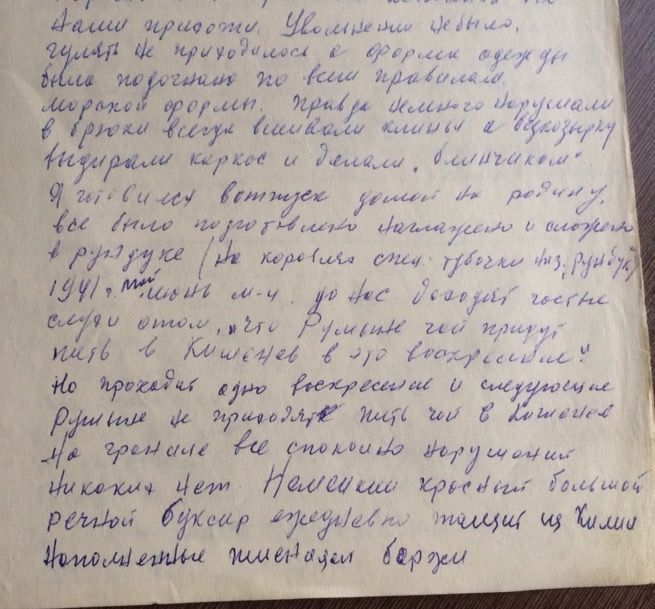 нами придожи. Увольнении не было,
гулять не приходилось а форма одежды
была подогнана по всем правилам
морской формы. Правда немного нарушали
в брюки всегда вшивали клинья а безкозырку
выдирали каркас и делали „блинчиком“.
Я готовился вотпуск домой на родину,
все было подготовлено наглажено и сложено
в рундуке (на кораблях спец. тубочки наз. рундук)
1941 г. май июнь м-ц. до нас доходят частые
слухи отом, „что Румыне чай придут
пить в Кишенев в это воскресение“
Но проходит одно воскресение и следующие
Румыне не приходят пить чай в Кишенев
На границе все спокойно нарушений
никаких нет. Немецкий красный большой
речной буксир ежедневно тащит из Килии
наполненные пшеницей баржи